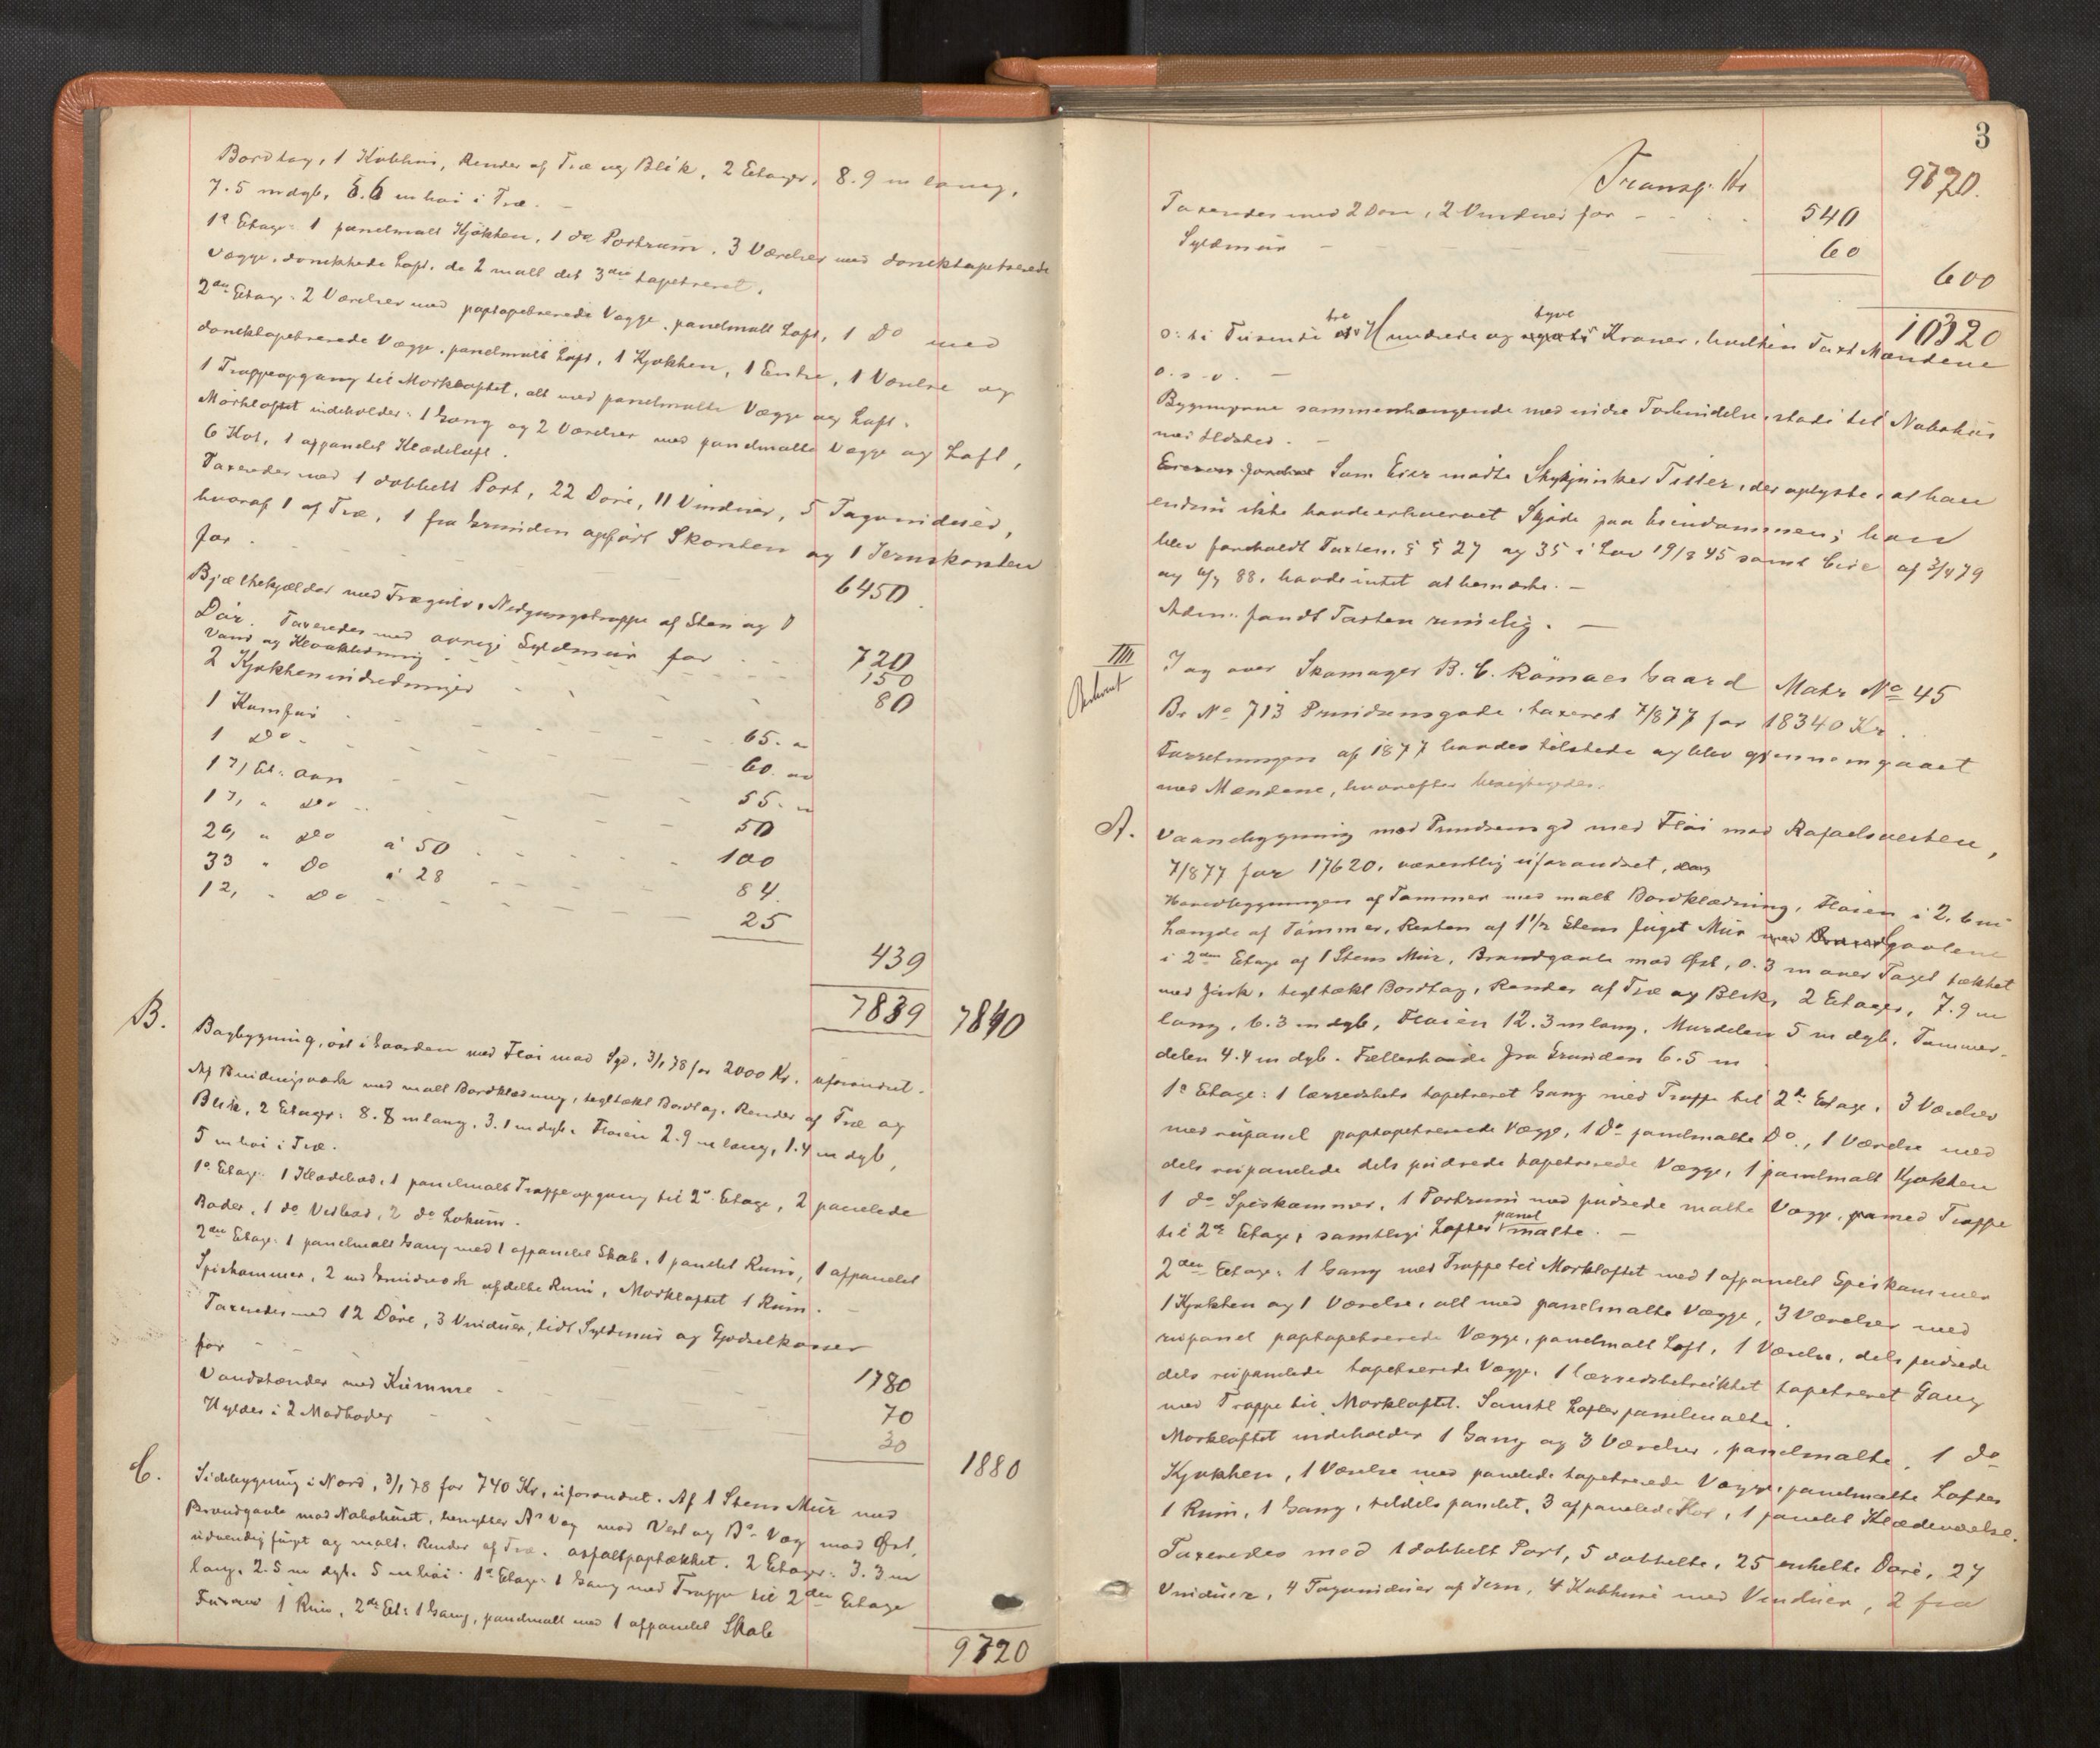 Bordtag, 1 Kobhus, Render af Træ og Blik, 2 Etager, 8.9 m lang,
7.5 m dyb, 5.6 m høi i Træ. –
1e Etage: 1 panelmalt Kjøkken, 1 do Portrum, 3 Værelser med
Vægge, Loft, de 2 malt det 3die tapetseret.
2den Etage: 2 Værelser med paptapetserede Vægge, panelmalt Loft, 1 Do med
Vægge, panelmalt Loft, 1 Kjøkken, 1 Entre, 1 Værelse og
1 Trappeopgang til Mørkloftet, alt med panelmalte Vægge og Loft.
Mørkloftet indeholder: 1 Gang og 2 Værelser med panelmalte Vægge og Loft,
6 Kot, 1 afpanelet Klædeloft.
Taxeredes med 1 dobbelt Port, 22 Døre, 11 Vinduer, 5 Tagvinduer,
hvoraf 1 af Træ, 1 fra Grunden opført Skorsten og 1 Jernskorsten
for - 6450
Bjælkekjælder med Trægulv, Nedgangstrappe af Sten og 1
Dør. Taxeredes med øvrige Syldmur for - - 720
Vand og Kloakledning - - - 150
2 Kjøkkenindredninger - - - 80
1 Komfur - - - 65. "
1 Do - - - 60. "
1 7/ Et. Ovn - - - 55. "
1 7, " Do - - - 50
2 6, " Do à 50 - - - 100
3 3 " Do à 28 - - - 84.
1 2, " Do - - - 25
439
7839 7840
B. Bagbygning, øst i Gaarden med Fløi mod Syd, 3/1 78 for 2000 Kr. uforandret.
Af Bindingsværk med malt Bordklædning, tegltækt Bordtag, Render af Træ og
Blik, 2 Etager: 8.8 m lang, 3.1 m dyb. Fløien 2.9 m lang, 1.4 m dyb,
5 m høi i Træ.
1e Etage: 1 Klædebod, 1 panelmalt Trappeopgang til 2den Etage, 2 panelede
Boder, 1 do Vedbod, 2 do Lokum.
2den Etage: 1 panelmalt Gang med 1 afpanelet Skab, 1 panelet Rum, 1 afpanelet
Spiskammer, 2 ved afdelte Rum, Mørkloftet 1 Rum. –
Taxeredes med 12 Døre, 3 Vinduer, lidt Syldmur og Gjødselkasser
for - - - 1780
Vandstænder med Kumme - - - 70
Hylder i 2 Madboder - - - 30
1880
C. Sidebygning i Nord, 3/1 78 for 740 Kr, uforandret. Af 1 Stens Mur med
Brandgavle mod Nabohuset, benytter As Væg mod Vest og Bs Væg mod Øst,
udvendig fuget og malt. Render af Træ, asfaltpaptækket. 2 Etager: 3.3 m
lang, 2.5 m dyb, 5 m høi. 1e Etage: 1 Gang med Trappe til 2den Etage
1 Rum, 2den Et: 1 Gang, panelmalt med 1 afpanelet Skab
9720
3
Transp. Kr 9720.
Taxeredes med 2 Døre, 2 Vinduer for - - - 540
Syldmur - - - 60
600
10320
o: ti Tusende tre Hundrede og tyve Kroner, hvilken Taxt Mændene
o. s. v. –
Bygningerne sammenhængende med indre Forbindelse, stødt til Nabohus
ved Ildsted. –
Som Eier mødte Titler, der oplyste, at han
endnu ikke havde erhvervet Skjøde paa Eiendommen; han
blev foreholdt Taxten, § § 27 og 35 i Lov 19/8 45 samt Circ af 3/4 79
og 88, havde intet at bemærke. –
Adm. fandt Taxten rimelig. –
IIII Tag over Skomager B. C. Gaard Matr No 45
Br No 713 taxeret 7/8 77 for 18340 Kr.
Forretningen af 1877 havdes tilstede og blev gjennemgaaet
med Mændene, hvorefter besigtigedes:
A. Vaanebygning mod med Fløi mod
7/8 77 for 17620, væsentlig uforandret,
Hovedbygningen af Tømmer med malt Bordklædning, Fløien i 2.6 m
Længde af Tømmer, Resten af 1 1/2 Stens fuget Mur med Gavlene
i 2den Etage af 1 Stens Mur, Brandgavle mod Øst, 0.3 m over Taget tækket
med Zink, tegltækt Bordtag, Render af Træ og Blik, 2 Etager, 7.9 m
lang, 6.3 m dyb, Fløien 12.3 m lang, Murdelen 5 m dyb, Tømmer-
delen 4.4 m dyb. Fælleshøide fra Grunden 6.5 m
1e Etage: 1 tapetseret Gang med Trappe til 2den Etage, 3 Værelser
med rupanel paptapetserede Vægge, 1 Do panelmalte Do, 1 Værelse med
dels rupanelede dels pudsede tapetserede Vægge, 1 panelmalt Kjøkken
1 do Spiskammer, 1 Portrum med pudsede malte Vægge, med Trappe
til 2den Etage, samtlige Lofter panel malte. –
2den Etage: 1 Gang med Trappe til Mørkloftet med 1 afpanelet Spiskammer
1 Kjøkken og 1 Værelse, alt med panelmalte Vægge, 3 Værelser med
rupanel paptapetserede Vægge, panelmalt Loft, 1 Værelse, dels pudsede
dels rupanelede tapetserede Vægge, 1 tapetseret Gang
med Trappe til Mørkloftet. Samtl Lofter panelmalte.
Mørkloftet indeholder 1 Gang og 3 Værelser, panelmalte, 1 do
Kjøkken, 1 Værelse med panelede tapetserede Vægge, panelmalte Lofter
1 Rum, 1 Gang, tildels panelet, 3 afpanelede Kot, 1 panelet Klædeværelse.
Taxeredes med 1 dobbelt Port, 5 dobbelte, 25 enkelte Døre, 27
Vinduer, 4 Tagvinduer af Jern, 4 Kobhuse med Vinduer, 2 fra